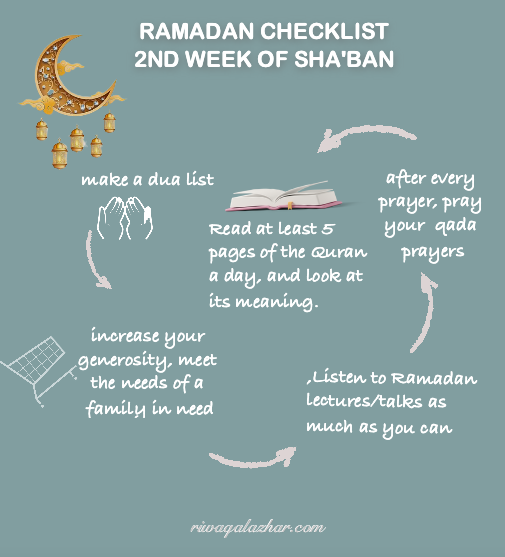 RAMADAN CHECKLIST
2ND WEEK OF SHA'BAN
make a dua list
increase your
generosity, meet
the needs of a
family in need
,Listen to Ramadan
lectures/talks as
much as you can
after every
prayer, pray
your qada
prayers
Read at least 5
pages of the Quran
a day, and look at
its meaning.
riwaqalazhar.com